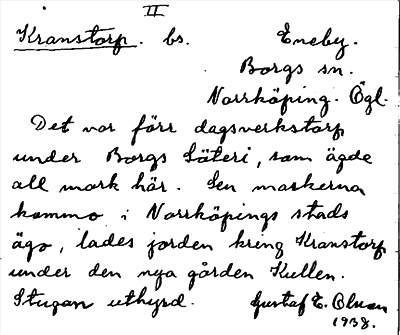 II
Kranstorp. bs. Eneby.
Borgs sn.
Norrköping. Ögl.
Det var förr dagsverkstorp
under Borgs Säteri, som ägde
all mark här. Sen markerna
kommo i Norrköpings stads
ägo, lades jorden kring Kranstorp
under den nya gården Kullen.
Stugan uthyrd. Gustaf E. Olsson
1938.